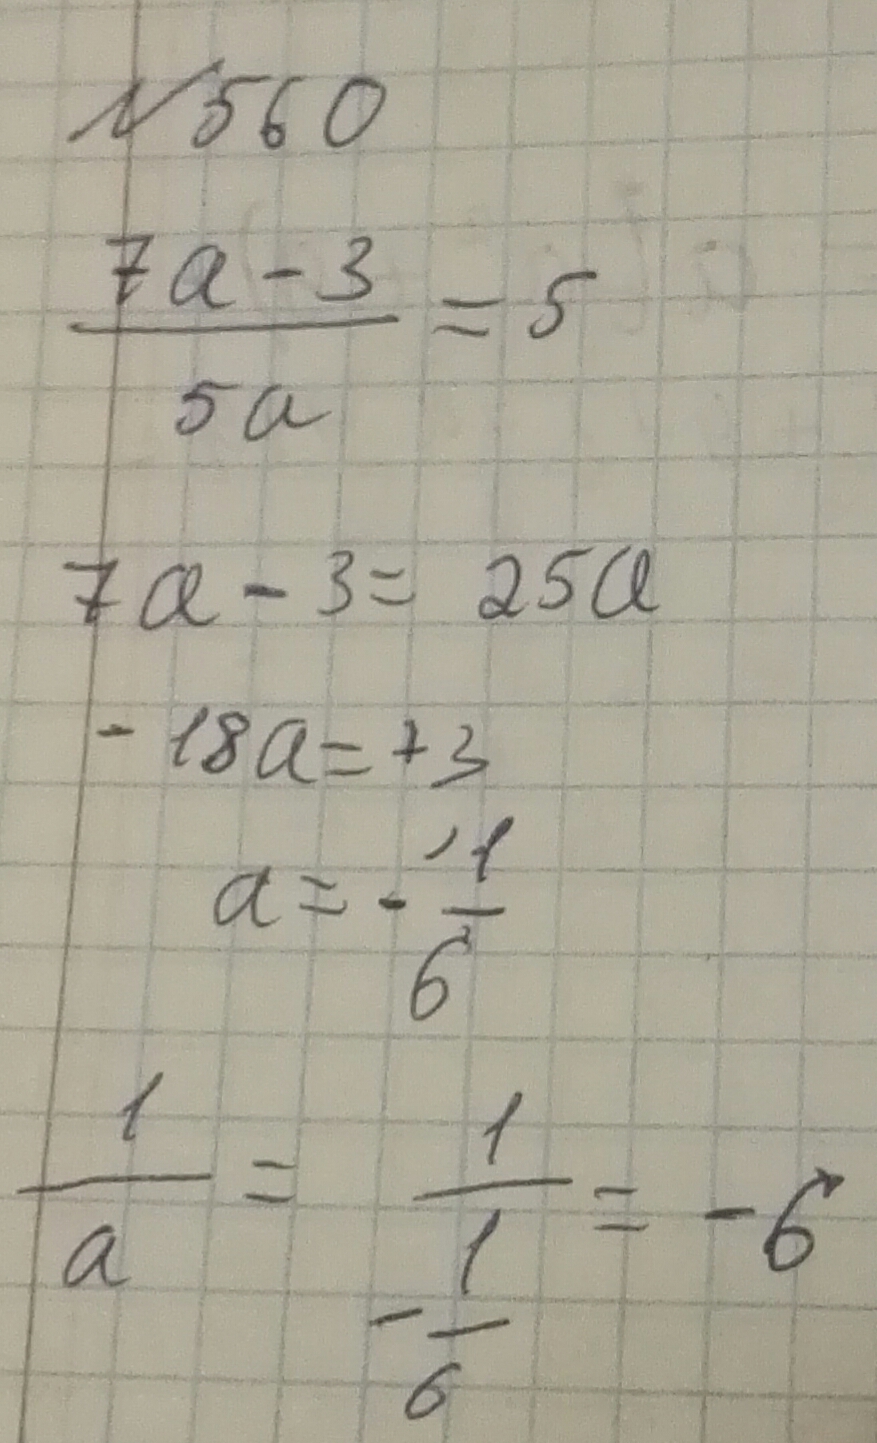 № 560
(7a - 3)/(5a) = 5
7a - 3 = 25a
- 18a = +3
a = - 1/6
1/a = 1/(- 1/6) = - 6